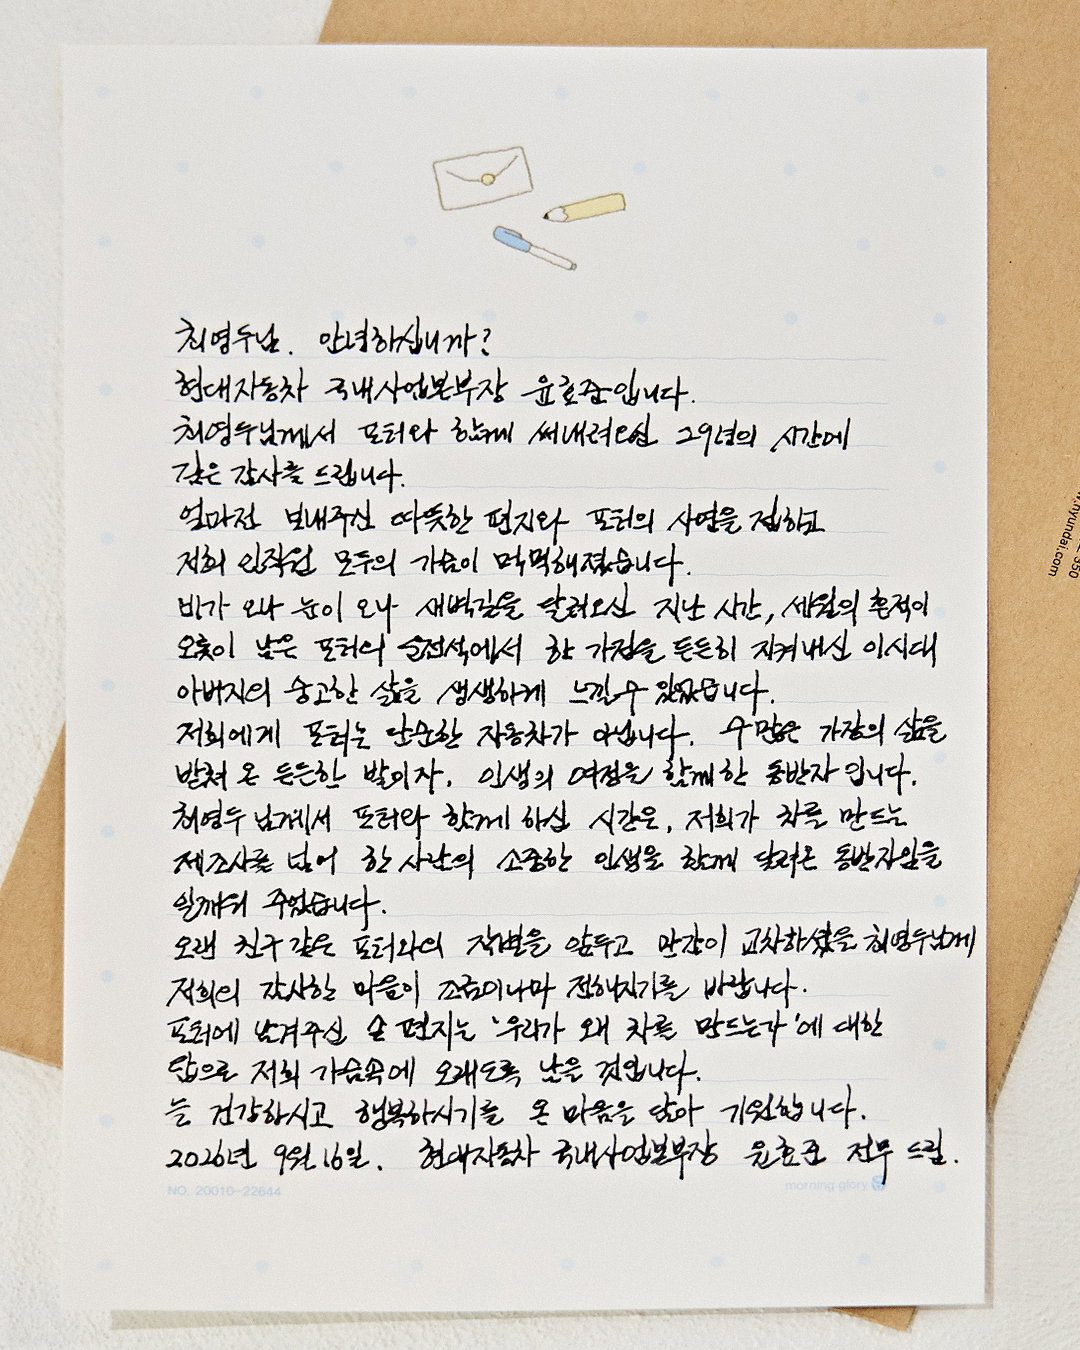 최영두님. 안녕하십니까?
현대자동차 국내사업본부장 윤효준입니다.
최영두님께서 포터와 함께 써내려오신 29년의 시간에
깊은 감사를 드립니다.
얼마전 보내주신 따뜻한 편지와 포터의 사연을 접하고
저희 임직원 모두의 가슴이 먹먹해졌습니다.
비가 오나 눈이 오나 새벽길을 달려오신 지난 시간, 세월의 흔적이
오롯이 남은 포터의 운전석에서 한 가정을 든든히 지켜내신 이시대
아버지의 숭고한 삶을 생생하게 느낄수 있었습니다.
저희에게 포터는 단순한 자동차가 아닙니다. 수많은 가장의 삶을
받쳐 온 든든한 발이자, 인생의 여정을 함께한 동반자입니다.
최영두님께서 포터와 함께 하신 시간은, 저희가 차를 만드는
제조사를 넘어 한 사람의 소중한 인생을 함께 달려온 동반자임을
일깨워 주었습니다.
오랜 친구 같은 포터와의 작별을 앞두고 만감이 교차하셨을 최영두님께
저희의 감사한 마음이 조금이나마 전해지기를 바랍니다.
포터에 남겨주신 손 편지는 '우리가 왜 차를 만드는가'에 대한
답으로 저희 가슴속에 오래도록 남을 것입니다.
늘 건강하시고 행복하시기를 온 마음을 담아 기원합니다.
2026년 9월 16일. 현대자동차 국내사업본부장 윤효준 전무 드림.
NO. 20010-22644
morning glory
hyundai.com
350